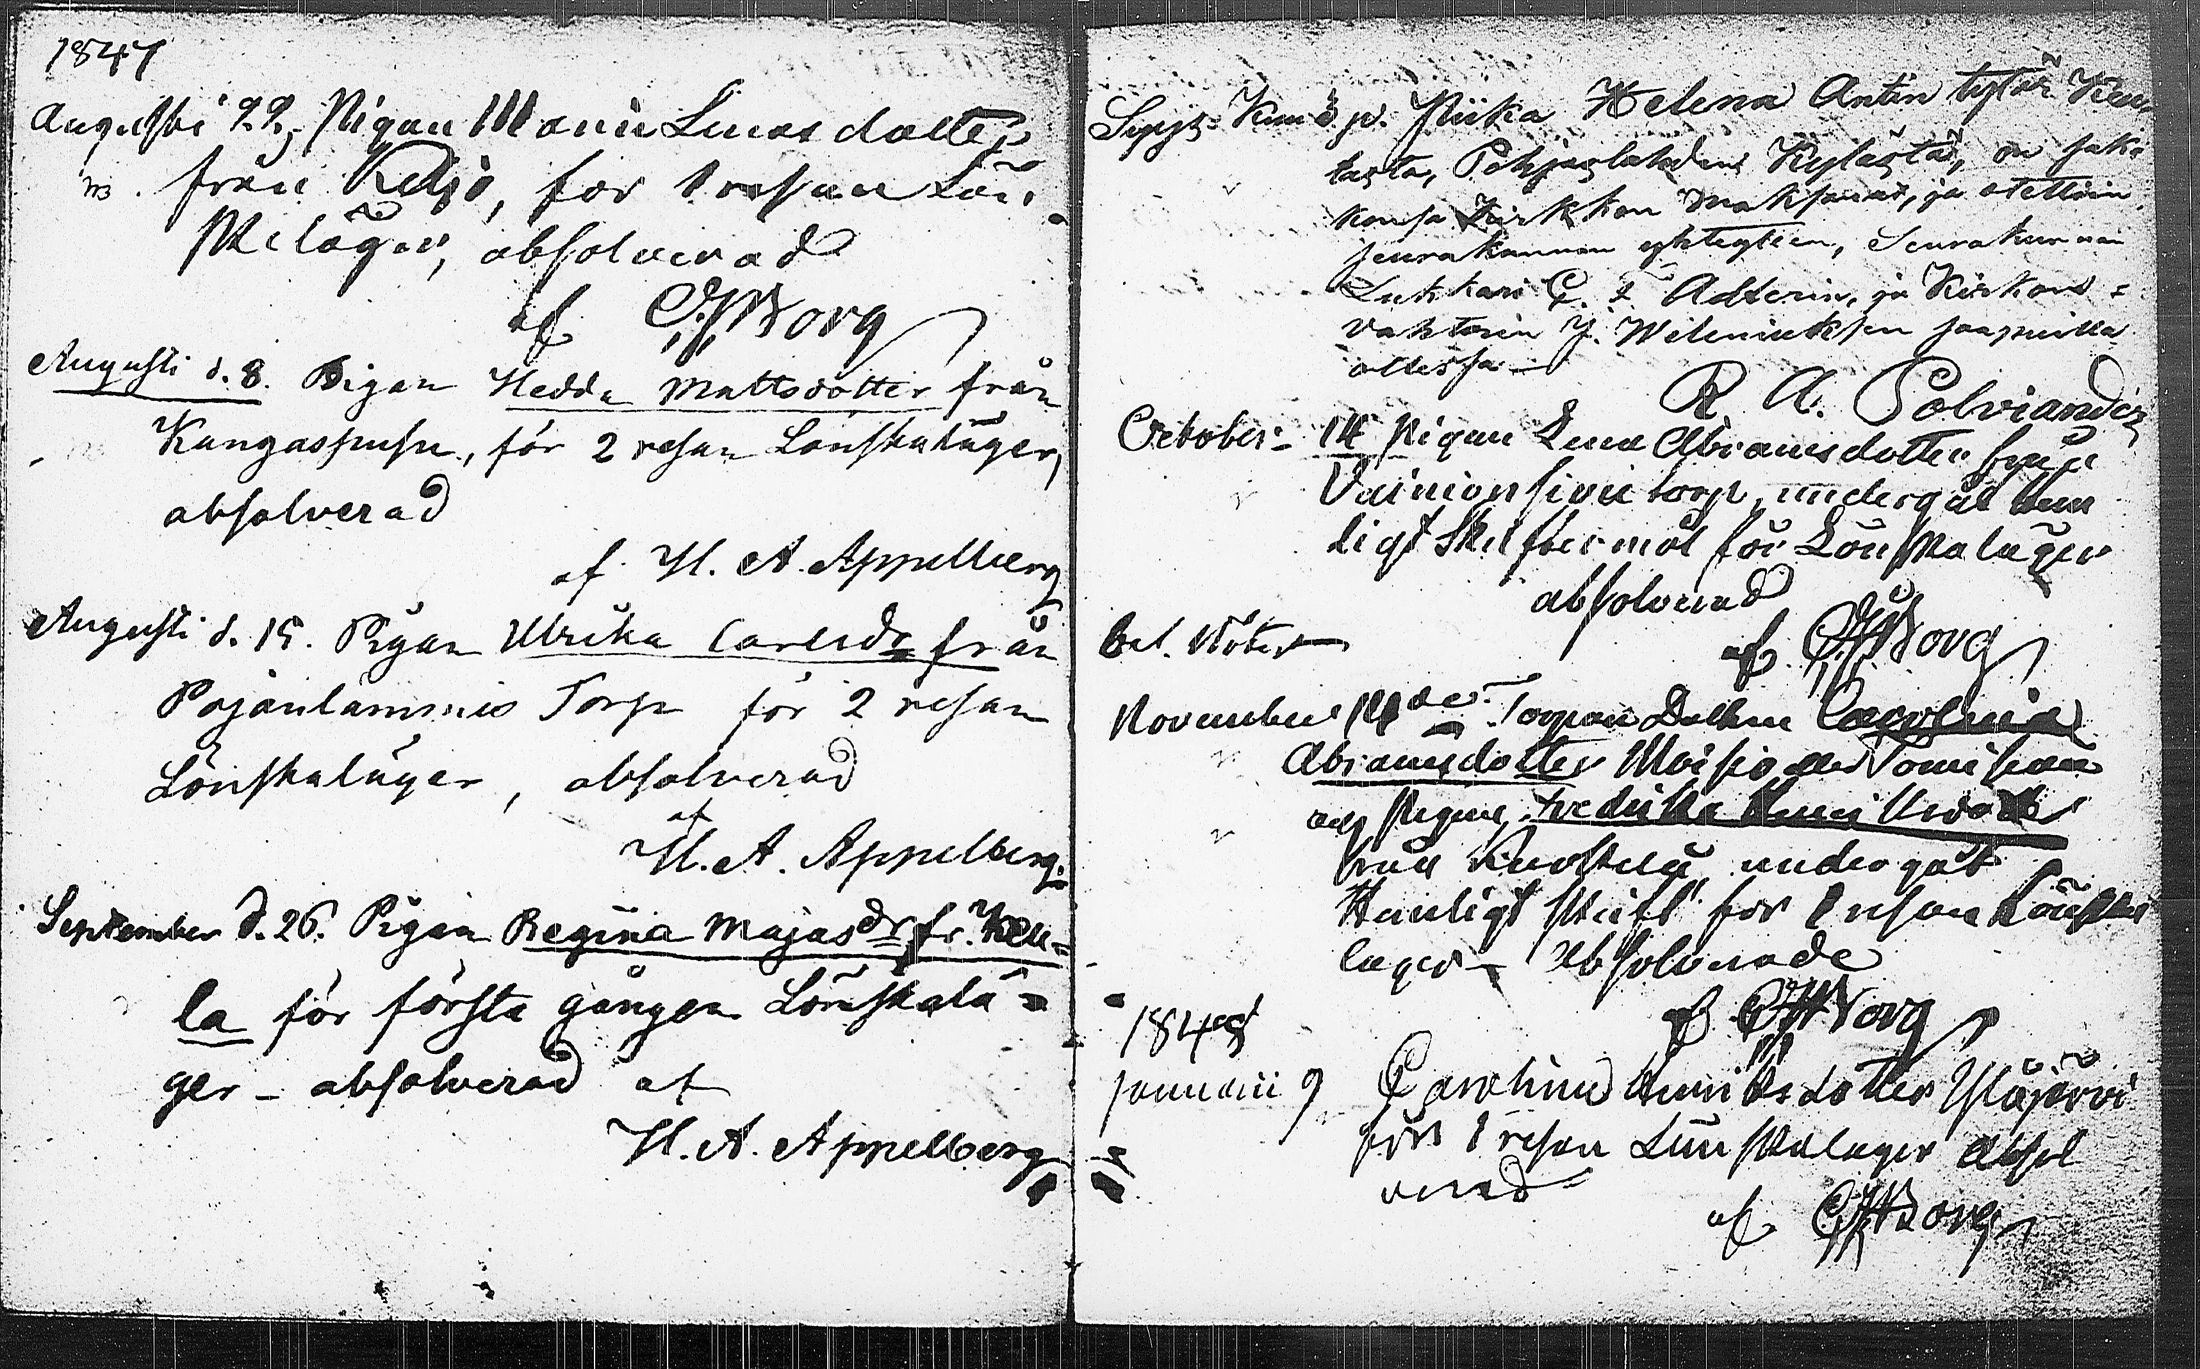 1847
Augusti 22, Pigan Maria Lucasdotter
från Keljo, för 1 resan Lön
skeläger, absolverad
af Borg
Augusti d. 8. Pigan Hedda Mattsdotter från
Kangaspusu, för 2 resan Lönskaläger,
absolverad
af H. A. Appelberg
Augusti d. 15. Pigan Ulrika Carlsdr från
Pajanlammis Torp för 2 resan
Lönskaläger, absolverad
af
H. A. Appelberg.
September d. 26. Pigan Regina Majasdr fr. Keu-
la för första gången Lönskalä-
ger - absolverad af
H. A. Appelberg
Sept. Kuu 5 p. Piika Helena Antin tytär Keu
lasta, Pohjaslahden Kylästä, on
Kirkkon maksanut, ja otettiin
seurakunnan yhteyteen, Seurakunnan
Lukkari Adlerin, ja Kirkon-
vahtarin J. Weleniuksen saapuilla
ollessa -
R. A. Polviander
October 14 Pigan Lena Abramsdotter från
torp, undergåt hem
ligt Skriftermål för Lönskaläger
absolverad
af Borg
November 14de Torpare Dottren Carolina
Abramsdotter Moisio
och Pigan Fredrika
från undergåt
Hemligt skrift för 1 resan Lönska
lager - absolverade
af Borg
1848
januarii 9 Carolina Henriksdotter Yläjärvi
för 1 resan Lönskalager absol
verad
af Borg